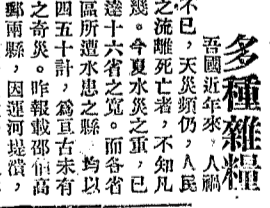 多種雜糧
吾國近年來、人禍
不已、天災頻仍、人民
之流離死亡者、不知凡
幾。今夏水災之重、已
達十六省之寬。而各省
區所遭水患之縣、均以
四五十計、爲亘古未有
之奇災。昨報載邵伯高
郵兩縣、因運河堤潰、